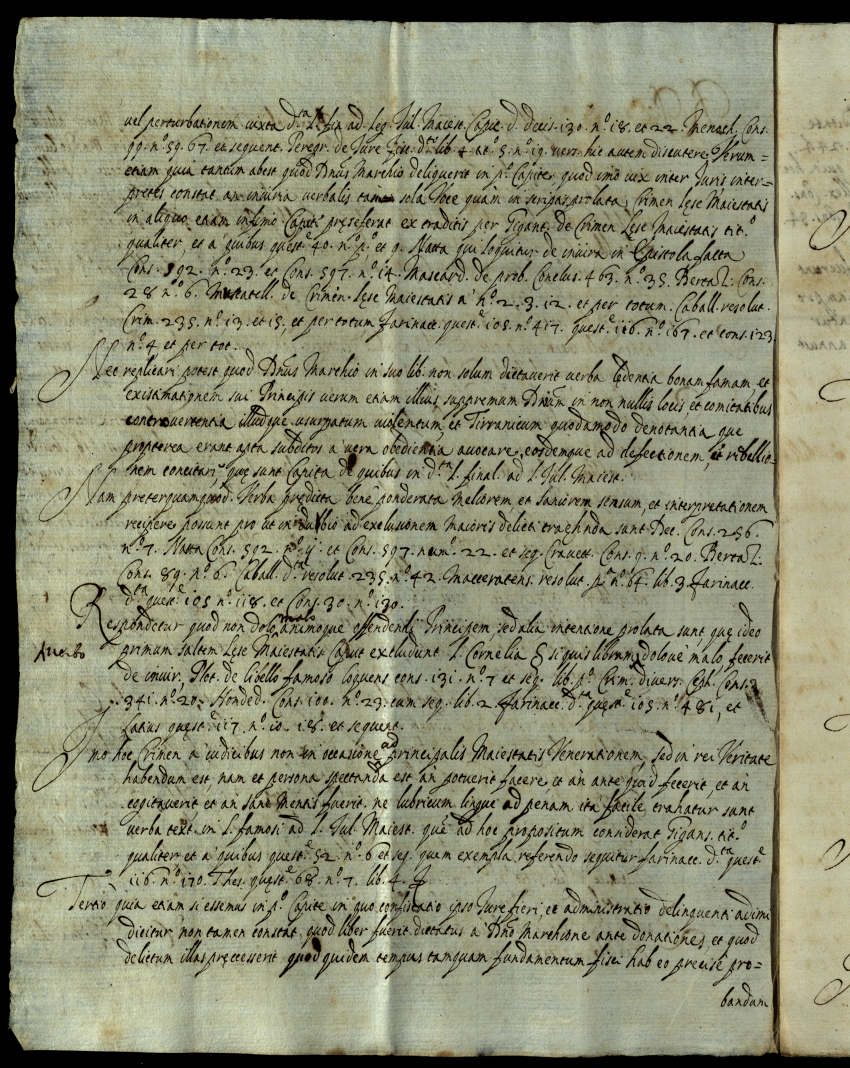 uel perturbationem iuxta d.ta l. fin ad leg. Iul. Maiest. Capic. d. decis. 130. n.o 18. et 22. Menoch. Cons.
99. n.o 59. 67. et sequent. Peregr. de Iure Fisc. d.to lib. 4. tt.o 5. n.o 19. uers. hic autem discutere Verum=
etiam quia tantum abest quod Dnus Marchio deliquerit in p.o Capite, quod imo uix inter Iuris inter=
pretes constat an iniuria uerbalis sola Voce quam in scriptis prolata, Crimen lese Maiestatis
in aliquo etiam infimo Capite preseferat ex traditis per Gigant. de Crimen Lese Maiestatis tit.o
qualiter, et a quibus quest.e 40. n.o p.o et 9. Natta qui loquitur de iniuria in Epistola facta
Cons. 592. n.o 23. et Cons. 597. n.o 14. Mascard. de prob. Conclus. 463. n.o 35. Bertaz. Cons.
28 n.o 6. Muscatell. de Crimin. lese Maiestatis a n.o 2. 3. 12. et per totum. Caball. resolut.
Crim. 235. n.o 13. et 15, et per totum Farinacc. quest.e 105. n.o 417. quest.e 116. n.o 167. et cons. 123
n.o 4 et per tot.
Nec replicari potest quod Dnus Marchio in suo lib. non solum dictauerit uerba ledentia bonam famam, et
existimationem sui Principis uerum etiam illius supremum Dnium in non nullis locis et comitatibus
controuertentia illudque usurpatum uiolentum, et Tirranicum quodamodo denotantia que
propterea erant apta subditos a uera obedientia auocare, eosdemque ad defectionem, et rebellio=
nem concitari, que sunt Capita de quibus in d.ta l. final. ad l. Iul. Maiest.
Nam preterquamquod. Verba predicta bene ponderata meliorem, et saniorem sensum, et interpretationem
recipere possunt pro ut in dubbio ad exclusionem maioris delicti trahenda sunt Dec. Cons. 256.
n.o 7. Natta Cons. 592. n.o ij. et Cons. 597. num.o 22. et seq. Crauett. Cons. 9. n.o 20. Bertaz.
Cons. 89. n.o 6. Caball. d.ta resolut. 235. n.o 42. Macceratens. resolut. p.a n.o 64. lib. 3. Farinacc.
d.ta quest.e 105. n.o 118. et Cons. 30. n.o 130.
Respondetur quod non dolo malo animoque offendendi Principem, sed alia intentione prolata sunt que ideo
A uerbo
primum saltem Lese Maiestatis Caput excludunt l. Cornelia § si quis librum, doloue malo, fecerit
de iniur. Plot. de libello famoso loquens cons. 131. n.o 7 et seq. lib. p.o Crim. diuers. Ceph. Cons.
341. n.o 20. Honded. Cons. 100. n.o 23. cum seq. lib. 2. Farinacc. d.ta quest.e 105. n.o 481, et
latius quest.e 117. n.o 10. 18. et sequent.
Imo hoc Crimen a iudicibus non in occasione ad principalis Maiestatis Venerationem, sed in rei Veritate
habendum est, nam et persona spectanda est an potuerit facere et an ante quid fecerit, et an
cogitauerit et an sane mentis fuerit. ne lubricum lingue ad penam ita facile trahatur sunt
uerba text. in l. famosi ad l. Iul. Maiest. que ad hoc propositum considerat Gigans. tit.o
qualiter et a quibus quest.e 52. n.o 6 et seq. quem exempla referendo sequitur Farinacc. d.ta quest.e
116. n.o 170. Thes. quest.e 68. n.o 7. lib. 4.
Tertio quia etiam si essemus in p.o Capite in quo confiscatio ipso Iure fieri, et administratio delinquenti adimi
dicitur, non tamen constat, quod liber fuerit dictatus a Dno Marchione ante donationes, et quod
delictum illas precesserit quod quidem tempus tamquam fundamentum fisci hab eo precise pro=
bandum